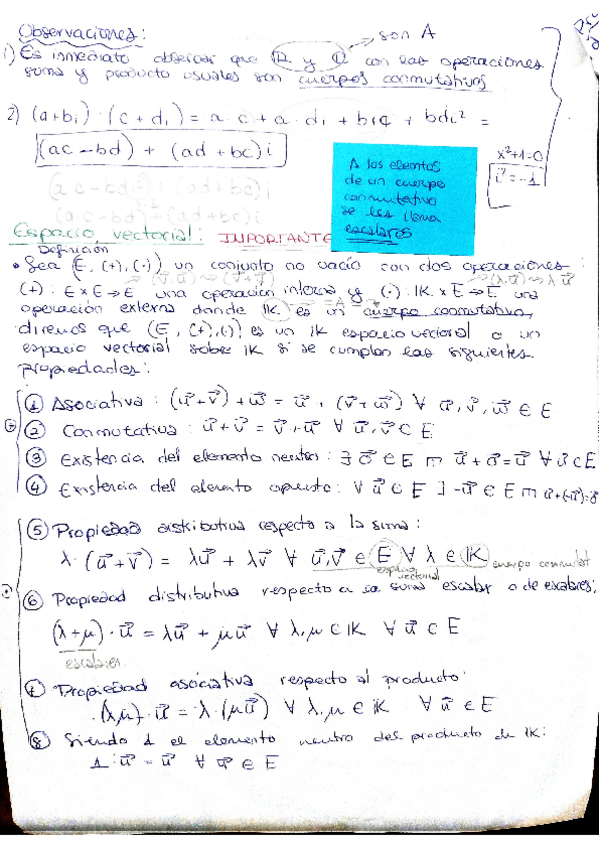 Observaciones:
son A
1) Es inmediato observar que ℝ y ℂ con las operaciones
suma y producto usuales son cuerpos conmutativos
2) (a+bi)·(c+di) = a·c + a·di + bic + bdi² =
(ac-bd) + (ad+bc)i
x²+1=0
i²=-1
A los elementos
de un cuerpo
conmutativo
se les llama
escalares
Espacio vectorial: IMPORTANTE
Definición
• Sea (E, (+), (·)) un conjunto no vacío con dos operaciones
(+): E×E→E una operación interna y (·): IK×E→E una
operación externa donde IK es un cuerpo conmutativo,
diremos que (E, (+), (·)) es un IK espacio vectorial o un
espacio vectorial sobre IK si se cumplen las siguientes
propiedades:
① Asociativa: (u⃗+v⃗)+w⃗ = u⃗+(v⃗+w⃗) ∀ u⃗,v⃗,w⃗ ∈ E
② Conmutativa: u⃗+v⃗ = v⃗+u⃗ ∀ u⃗,v⃗ ∈ E
③ Existencia del elemento neutro: ∃ o⃗ ∈ E m u⃗+o⃗=u⃗ ∀ u⃗∈E
④ Existencia del elemento opuesto: ∀ u⃗ ∈ E ∃ -u⃗ ∈ E m u⃗+(-u⃗)=o⃗
⑤ Propiedad distributiva respecto a la suma:
λ·(u⃗+v⃗) = λu⃗ + λv⃗ ∀ u⃗,v⃗ ∈ E ∀ λ ∈ IK cuerpo conmutat
espacio
vectorial
⑥ Propiedad distributiva respecto a la suma escalar o de escalares:
(λ+μ)·u⃗ = λu⃗ + μu⃗ ∀ λ,μ ∈ IK ∀ u⃗ ∈ E
escalares
⑦ Propiedad asociativa respecto al producto:
·(λμ)·u⃗ = λ·(μu⃗) ∀ λ,μ ∈ IK ∀ u⃗ ∈ E
⑧ Siendo 1 el elemento neutro del producto de IK:
1·u⃗ = u⃗ ∀ u⃗ ∈ E